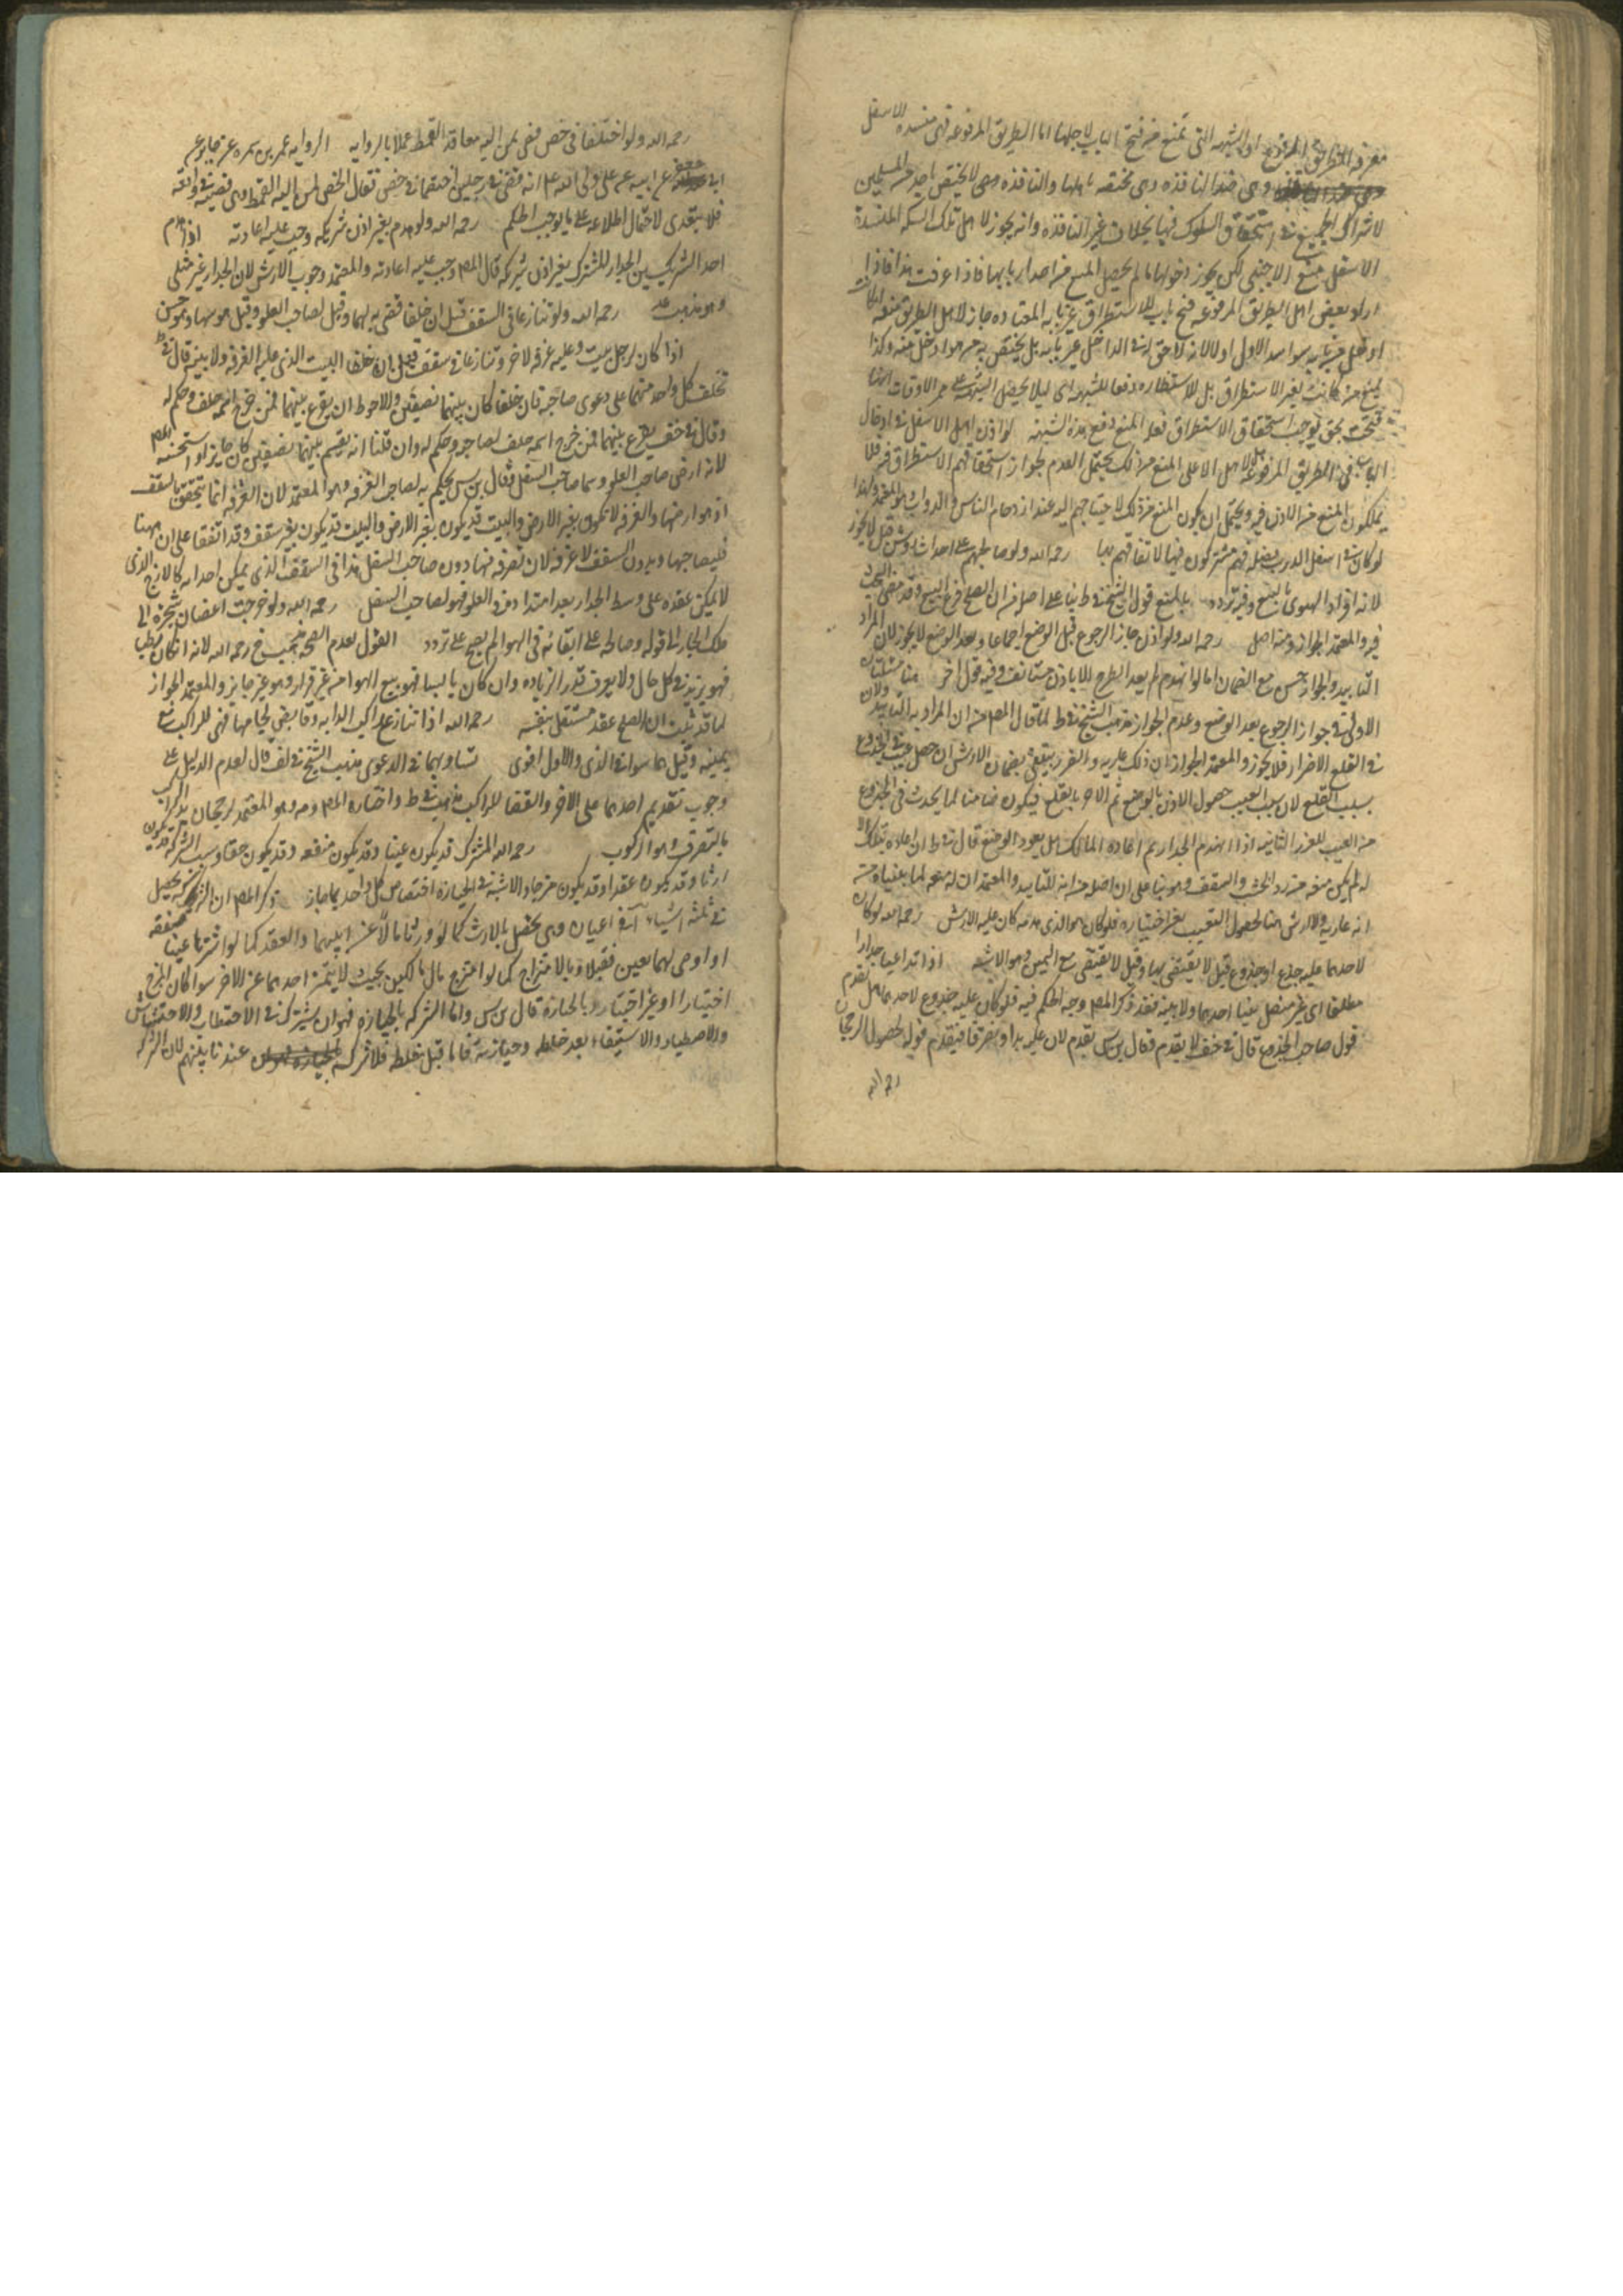 معرفه الطريق المرفوع او الشبهه التى تمنع من فتح الباب لاجلها اما الطريق المرفوعه فهى منسده الاسفل
وهى ضد النافذه وهى مختصه باهلها والنافذه وهى لا يختص باحد من المسلمين
لاشتراك الجميع فى استحقاق السلوك فيها بخلاف غير النافذه وانه يجوز لاهل تلك السكه المنسدة
الاسفل منع الاجنبى لكن يجوز دخولها ما لم يحصل المنع من احد اربابها فاذا عرفت هذا فاذا
اراد بعض اهل الطريق المرفوعه فتح باب للاستطراق غير بابه المعتاده جاز لاهل الطريق منعه
ادخل من بابه سوا سد الاول او لا لانه لا حق له فى الداخل عن بابه بل يختص به من هو ادخل منه وكذا
يمنع من كانت لغير الاستطراق بل للاستظاره دفعا للشبهه اى ليلا يحصل الشبهه على ممر الاوقات انها
فتحت بحق يوجب استحقاق الاستطراق فعله المنع دفع هذه الشبهه لو اذن اهل الاسفل فى ادخال
الباب فى الطريق المرفوعه هل لاهل الاعلى المنع من ذلك يحتمل العدم لجواز استحقاقهم الاستطراق فيه فلا
يملكون المنع من الاذن فيه ويحتمل ان يكون المنع من ذلك لاحتياجهم اليه عند ازدحام الناس والدواب وهو المعتمد ولهذا
لو كان فى اسفل الدرب فضله فهم مشتركون فيها لاتفاقهم بها رحمه الله ولو صالحهم على احداث روشن قيل لا يجوز
لانه افراد الهوى بالبيع وفيه تردد بالمنع قول الشيخ فى ط بنا على اصله من ان الصلح فرع البيع وقد مضى البحث
فيه والمعتمد الجواز ومنه اصل رحمه الله ولو اذن جاز الرجوع قبل الوضع اجماعا وبعد الوضع لا يجوز لان المراد
التابيد والجواز حسن مع الضمان اما لو انهدم لم يعد الطرح الا باذن مستانف وفيه قول اخر هنا مسئلتان
الاولى فى جواز الرجوع بعد الوضع وعدم الجواز مذهب الشيخ فى ط لما قال المص من ان المراد به التابيد ولان
فى القلع الاضرار فلا يجوز والمعتمد الجواز لان ذلك عاريه والضرر ينتفى بضمان الارش ان حصل عيب فى الجذوع
بسبب القلع لان سبب العيب حصول الاذن بالوضع ثم الامر بالقلع فيكون ضامنا لما يحدث فى الجذوع
من العيب للضرر الثانيه اذا انهدم الجدار ثم اعاده المالك هل يعود الوضع قال فى ط ان اعاده بتلك الاله
لم يكن منعه من رد الخشب والسقف وهو بنا على ان اصله من انه للتابيد والمعتمد ان له منعه لما بنيناه من
انه عاريه ولا ارش هنا لحصول التعيب بغير اختياره فلو كان هو الذى هدمه كان عليه الارش رحمه الله لو كان
لاحدهما عليه جذع او جذوع قيل لا يقضى بها وقيل لا يقضى مع اليمين وهو الاشبه اذا تداعيا جدارا
مطلقا اى غير متصل ببنا احدهما ولا بينه فقد ذكر المص وجه الحكم فيه فلو كان عليه جذوع لاحدهما هل يقدم
قول صاحب الجذوع قال فى خف لا يقدم وقال بن س يقدم لان عليه يدا وتصرفا فيقدم قوله لحصول الرجحان
رحمه الله
رحمه الله ولو اختلفا فى خص قضى لمن اليه معاقد القمط عملا بالروايه الروايه عمر بن سمره عن جابر عن
ابى جعفر عن ابيه عن على ولى الله عم انه قضى فى رجلين اختصما فى خص فقال الخص لمن اليه القمط وهى قضيه فى واقعه
فلا يتعدى لاحتمال اطلاعه على ما يوجب الحكم رحمه الله ولو هدم بغير اذن شريكه وجب عليه اعادته اذا هدم
احد الشريكين الجدار المشترك بغير اذن شريكه قال المص وجب عليه اعادته والمعتمد وجوب الارش لان الجدار غير مثلى
وهو مذهب مه رحمه الله ولو تنازعا فى السقف قيل ان حلفا قضى به لهما وقيل لصاحب العلو وقيل هو سهما وهو حسن
اذا كان لرجل بيت وعليه غرفه لاخر وتنازعا فى سقف البيت الذى عليه الغرفه ولا بينه قال فى ط
تحلف كل واحد منهما على دعوى صاحبه فان حلفا كان بينهما نصفين والاحوط ان يقرع بينهما فمن خرج اسمه حلف وحكم له
وقال فى خف يقرع بينهما فمن خرج اسمه حلف لصاحبه وحكم له وان قلنا انه يقسم بينهما نصفين كان جايزا واستحسنه المص
لانه ارض صاحب العلو وسما صاحب السفل وقال بن س يحكم به لصاحب الغرفه وهو المعتمد لان الغرفه انما يتحقق بالسقف
اذ هو ارضها والغرفه لا تكون بغير الارض والبيت قد يكون بغير سقف وقد اتفقا على ان هنا
فليصاحبها وبدون السقف لا غرفه لان تصرفه فيها دون صاحب السفل هذا فى السقف الذى يمكن احداثه كالازج الذى
لا يمكن عقده على وسط الجدار بعد امتداده فى العلو فهو لصاحب السفل رحمه الله ولو خرجت اغصان شجره الى
ملك الجار الى قوله وصالحه على ابقائه فى الهوا لم يصح على تردد القول بعدم الصحه مذهب الشيخ رحمه الله لانه ان كان رطبا
فهو يزيد فى كل حال ولا يعرف قدر الزياده وان كان يابسا فهو بيع الهوا من غير قرار وهو غير جايز والمعتمد الجواز
لما قد ثبت ان الصلح عقد مستقل بنفسه رحمه الله اذا تنازع راكب الدابه وقابض لجامها قضى للراكب مع
يمينه وقيل هما سوا فى الذى والاول اقوى تساويهما فى الدعوى مذهب الشيخ فى لف قال لعدم الدليل على
وجوب تقديم احدهما على الاخر والقضا للراكب مذهبه فى ط واختاره المص ومه وهو المعتمد لرجحان يد الراكب
بالتصرف وهو الركوب رحمه الله المشترك قد يكون عينا وقد يكون منفعه وقد يكون حقا وسبب الشركه قد يكون
ارثا وقد يكون عقدا وقد يكون مزجا والاشبه فى الحيازه اختصاص كل واحد بما حاز ذكر المص ان الشركه تحصل
فى ثلثه اشياء اعيان وهى تحصل بالارث كما لو ورثا مالا عن ابيهما والعقد كما لو اشتريا عينا صفقه
او اوصى لهما بعين فقبلا وبالامتزاج كما لو امتزج مال مالكين بحيث لا يتميز احدهما عن الاخر سوا كان المزج
اختيارا او غير اختيار وبالحيازه قال بن س واما الشركه بالحيازه فهو ان يشترك فى الاحتطاب والاحتشاش
والاصطياد والاستيقاء بعد خلطه وحيازته فاما قبل خلطه فلا شركه عندنا بينهم لان الشركه